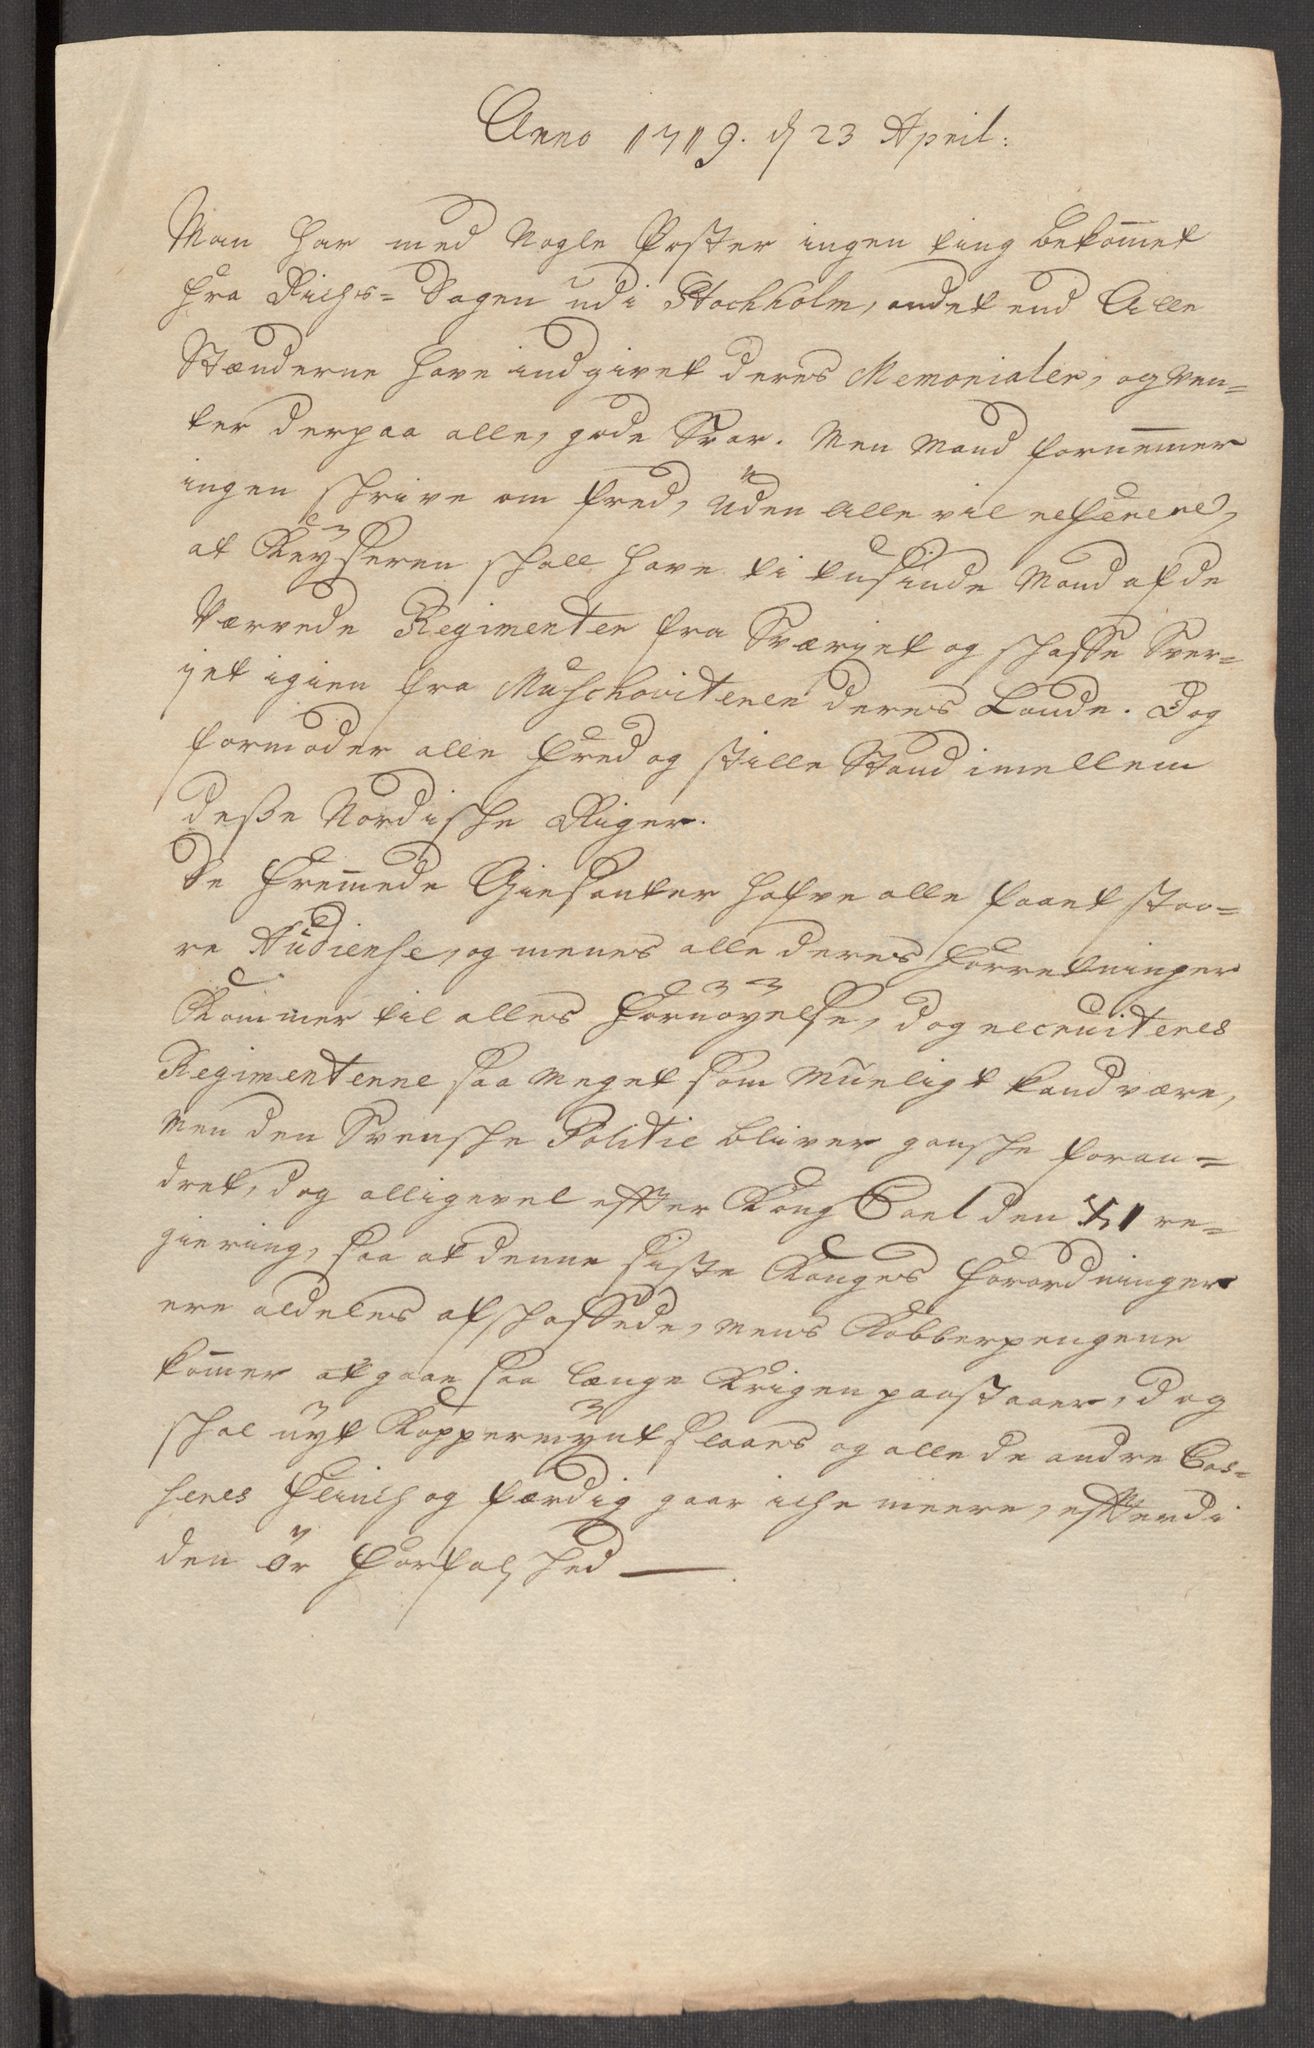 Anno 1719. d 23 April:
Man har med Nogle Poster ingen ting bekom̄et
fra Richs= Dagen udi Stochholm, andet end Alle
Stænderne have indgivet deres Memorialer, og ven=
ter derpaa alle, gode Svar. Men Mand fornem̄er
ingen schrive om fred, Uden Alle vil referere,
at Keyseren schall have ti tusinde Mand af de
Værvede Regimenter fra Sværjet og schaffe Sver=
jet igien fra Muschoviteren deres Lande. Dog
formoder alle fred og stille Stand imellem
desse Nordische Riger.
De Frem̄ede Giesanter hafve alle faaet stoo=
re Audiense, og menes alle deres Forretninger
Kommer til alles Fornøyelse, dog recruiteres
Regimenterne saa Meget som Mueligt kand være,
Men den Svensche Politie bliver gansche foran=
dret, dog alligevel efter Kong Carl den XI re=
giering, saa at denne siste Konges Forordninger
ere aldeles afschaffede, mens Kobberpengene
kom̄er at gaae saa længe Krigen paastaaer, dog
schal nyt Koppermynt slaaes og alle de andre Cas=
seres Flinch og færdig gaar iche meere, efterdi
den ør Forfalsched